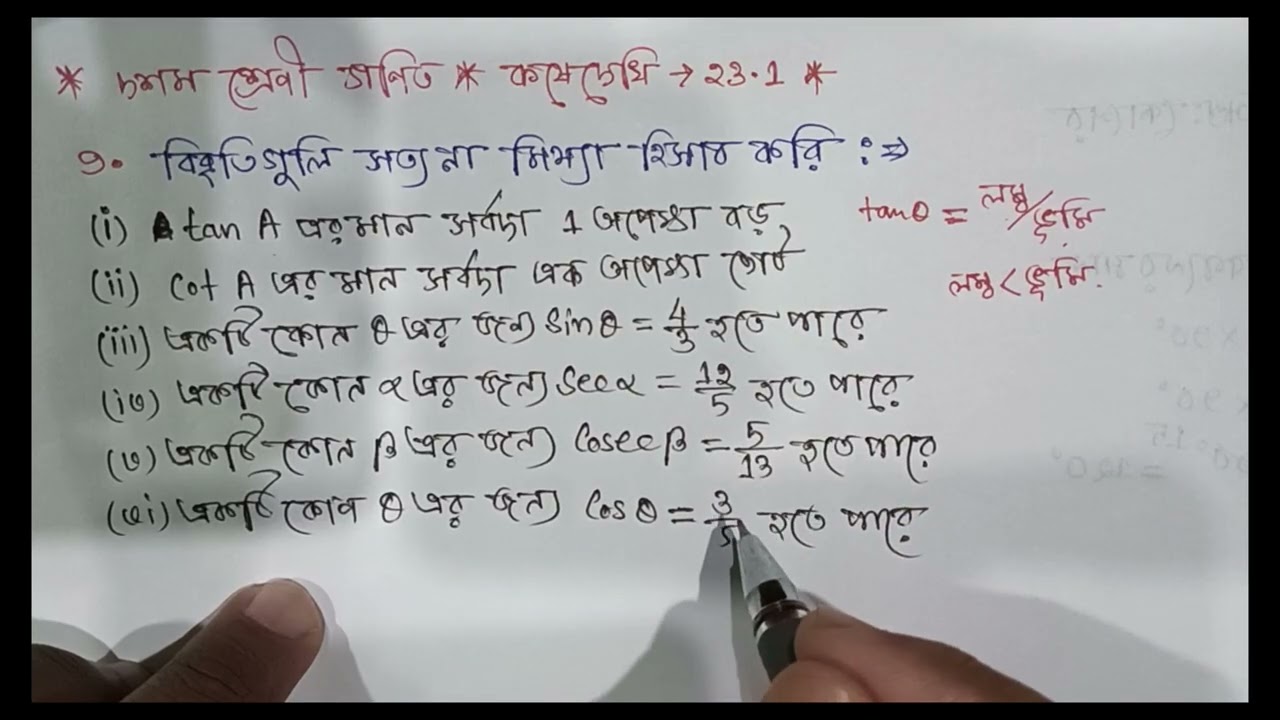 * দশম শ্রেণী গনিত * কষেদেখি → 23.1 *
9. বিবৃতিগুলি সত্য না মিথ্যা হিসাব করি :⇒
(i) tan A এর মান সর্বদা 1 অপেক্ষা বড়
tanθ = লম্ব/ভূমি
(ii) Cot A এর মান সর্বদা এক অপেক্ষা ছোট
লম্ব < ভূমি.
(iii) একটি কোন θ এর জন্য Sinθ = 4/3 হতে পারে
(iv) একটি কোন α এর জন্য Secα = 12/5 হতে পারে
(v) একটি কোন β এর জন্য Cosecβ = 5/13 হতে পারে
(vi) একটি কোন θ এর জন্য Cosθ = 3/5 হতে পারে